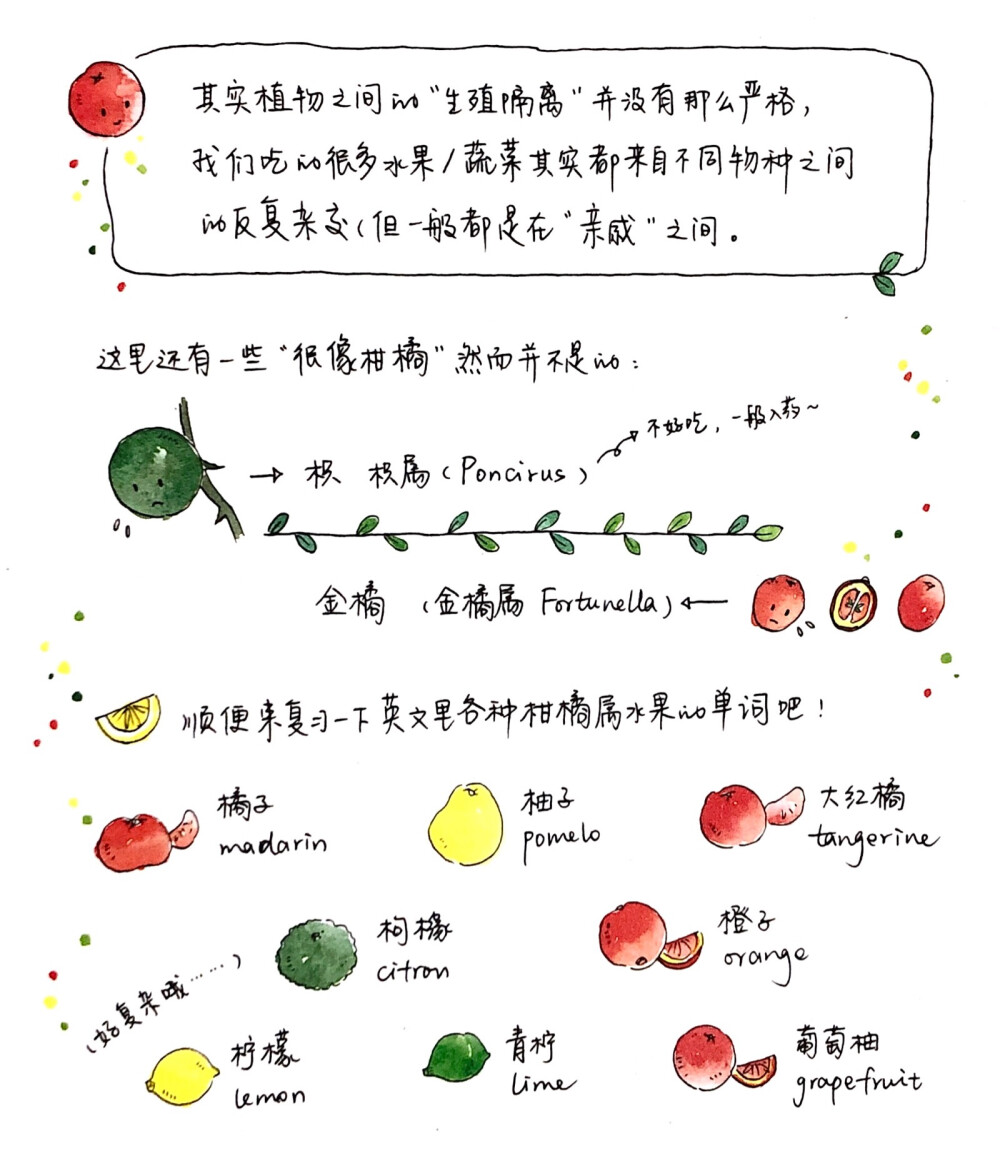 其实植物之间的"生殖隔离"并没有那么严格，
我们吃的很多水果/蔬菜其实都来自不同物种之间
的反复杂交（但一般都是在"亲戚"之间。
这里还有一些"很像柑橘"然而并不是的：
不好吃，一般入药~
枳、枳属（Poncirus）
金橘 （金橘属 Fortunella）
顺便来复习一下英文里各种柑橘属水果的单词吧！
橘子
madarin
柚子
pomelo
大红橘
tangerine
枸橼
citron
橙子
orange
（好复杂哦……）
柠檬
lemon
青柠
lime
葡萄柚
grapefruit